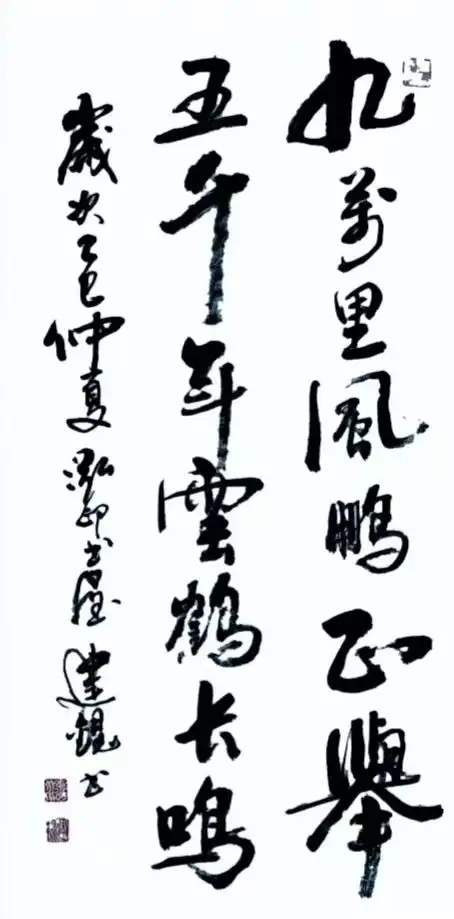 九萬里風鵬正舉
五千年雲鶴长鳴
歲次乙巳仲夏 建 书